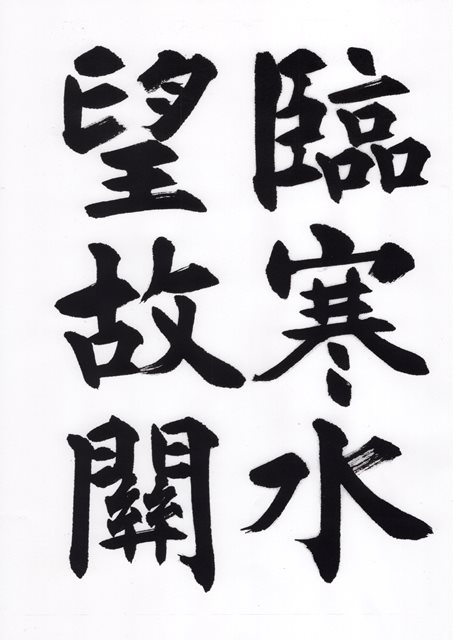 臨寒水
望故關